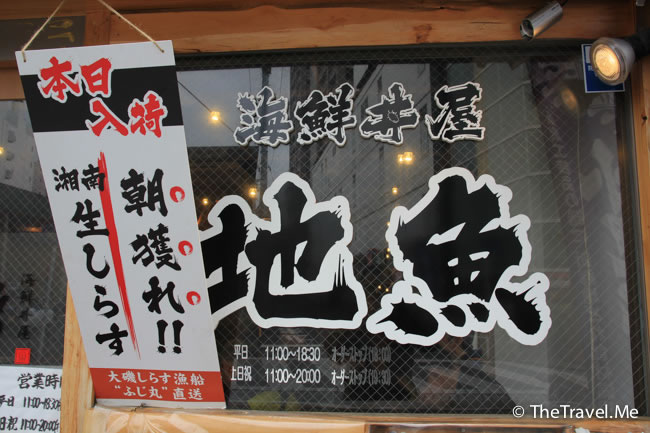 本日
入荷
朝獲れ!!
湘南
生しらす
大磯しらす漁船
“ふじ丸”直送
海鮮丼屋
地魚
平日 11:00〜18:30 オーダーストップ(18:00)
土日祝 11:00〜20:00 オーダーストップ(19:30)
海鮮丼屋
営業時
平日 11:00-18:30
日祝 11:00-20:00
© TheTravel.Me